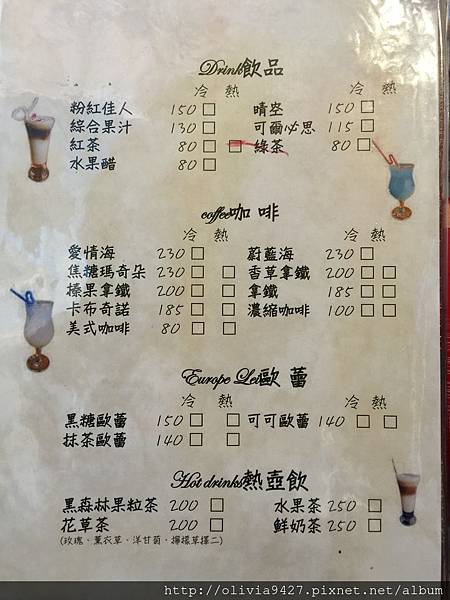 Drink飲品
冷 熱 冷 熱
粉紅佳人 150 □ 晴空 150 □
綜合果汁 130 □ 可爾必思 115 □
紅茶 80 □ □ 綠茶 80 □
水果醋 80 □
coffee咖啡
冷 熱 冷 熱
愛情海 230 □ 蔚藍海 230 □
焦糖瑪奇朵 230 □ □ 香草拿鐵 200 □ □
榛果拿鐵 200 □ □ 拿鐵 185 □ □
卡布奇諾 185 □ □ 濃縮咖啡 100 □ □
美式咖啡 80 □ □
Europe Lei歐蕾
冷 熱 冷 熱
黑糖歐蕾 150 □ □ 可可歐蕾 140 □ □
抹茶歐蕾 140 □ □
Hot drinks熱壺飲
黑森林果粒茶 200 □ 水果茶 250 □
花草茶 200 □ 鮮奶茶 250 □
(玫瑰、薰衣草、洋甘菊、檸檬草擇二)
http://olivia9427.pixnet.net/album